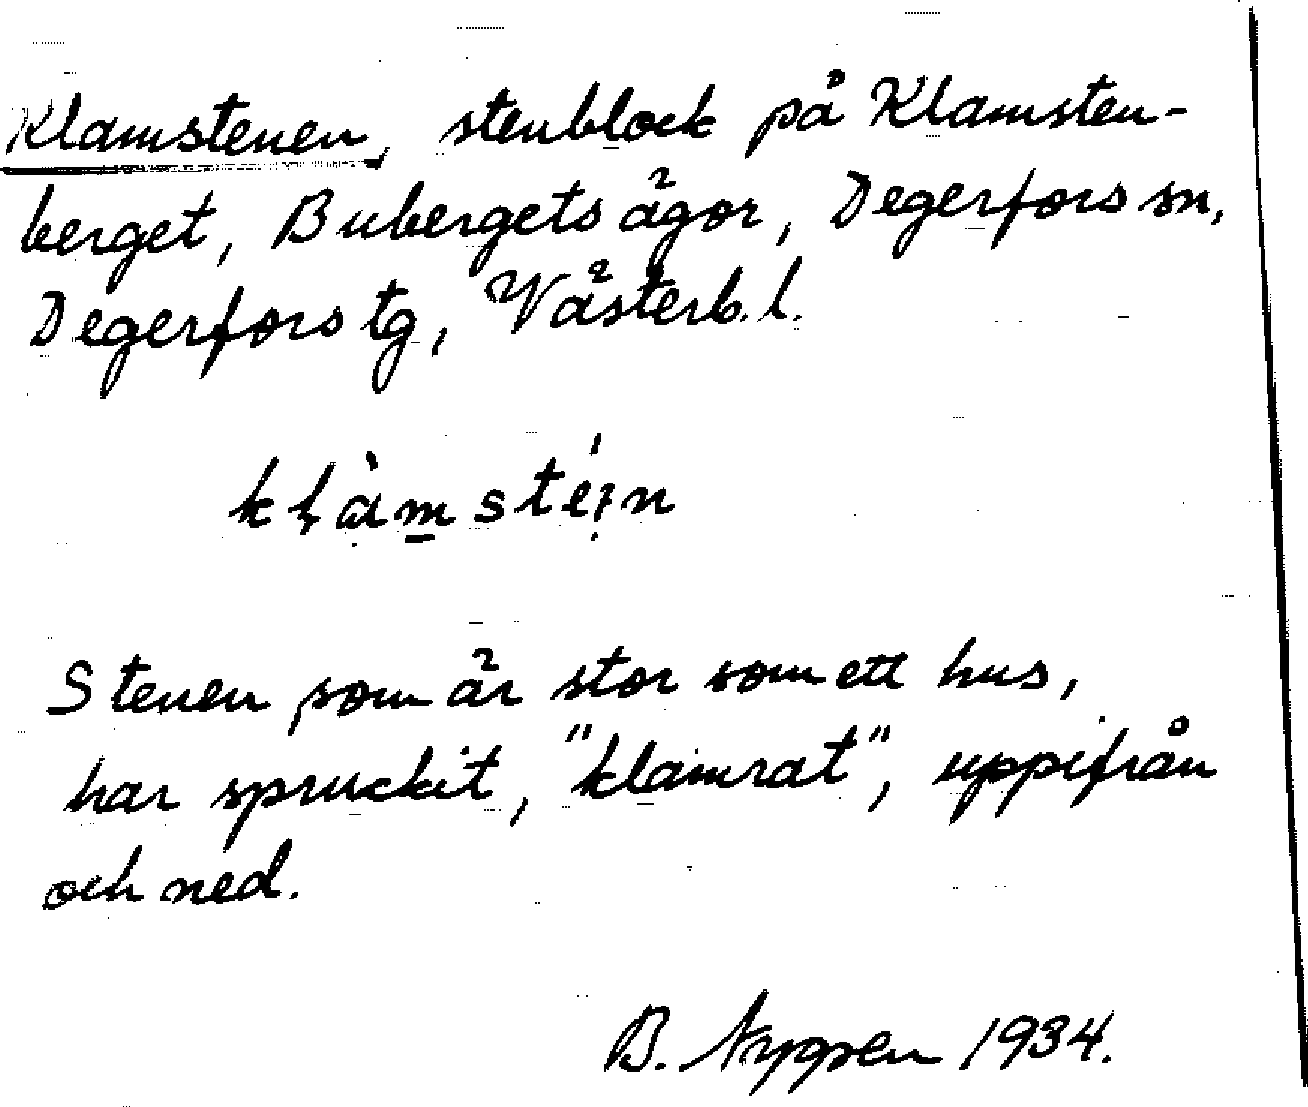 Klamstenen, stenblock på Klamsten-
berget, Bubergets ägor, Degerfors sn,
Degerfors tg, Västerb. l.
kḷạ̀m̲sté ̣ı̣n
Stenen som är stor som ett hus,
har spruckit, "klamrat", uppifrån
och ned.
B. Nygren 1934.